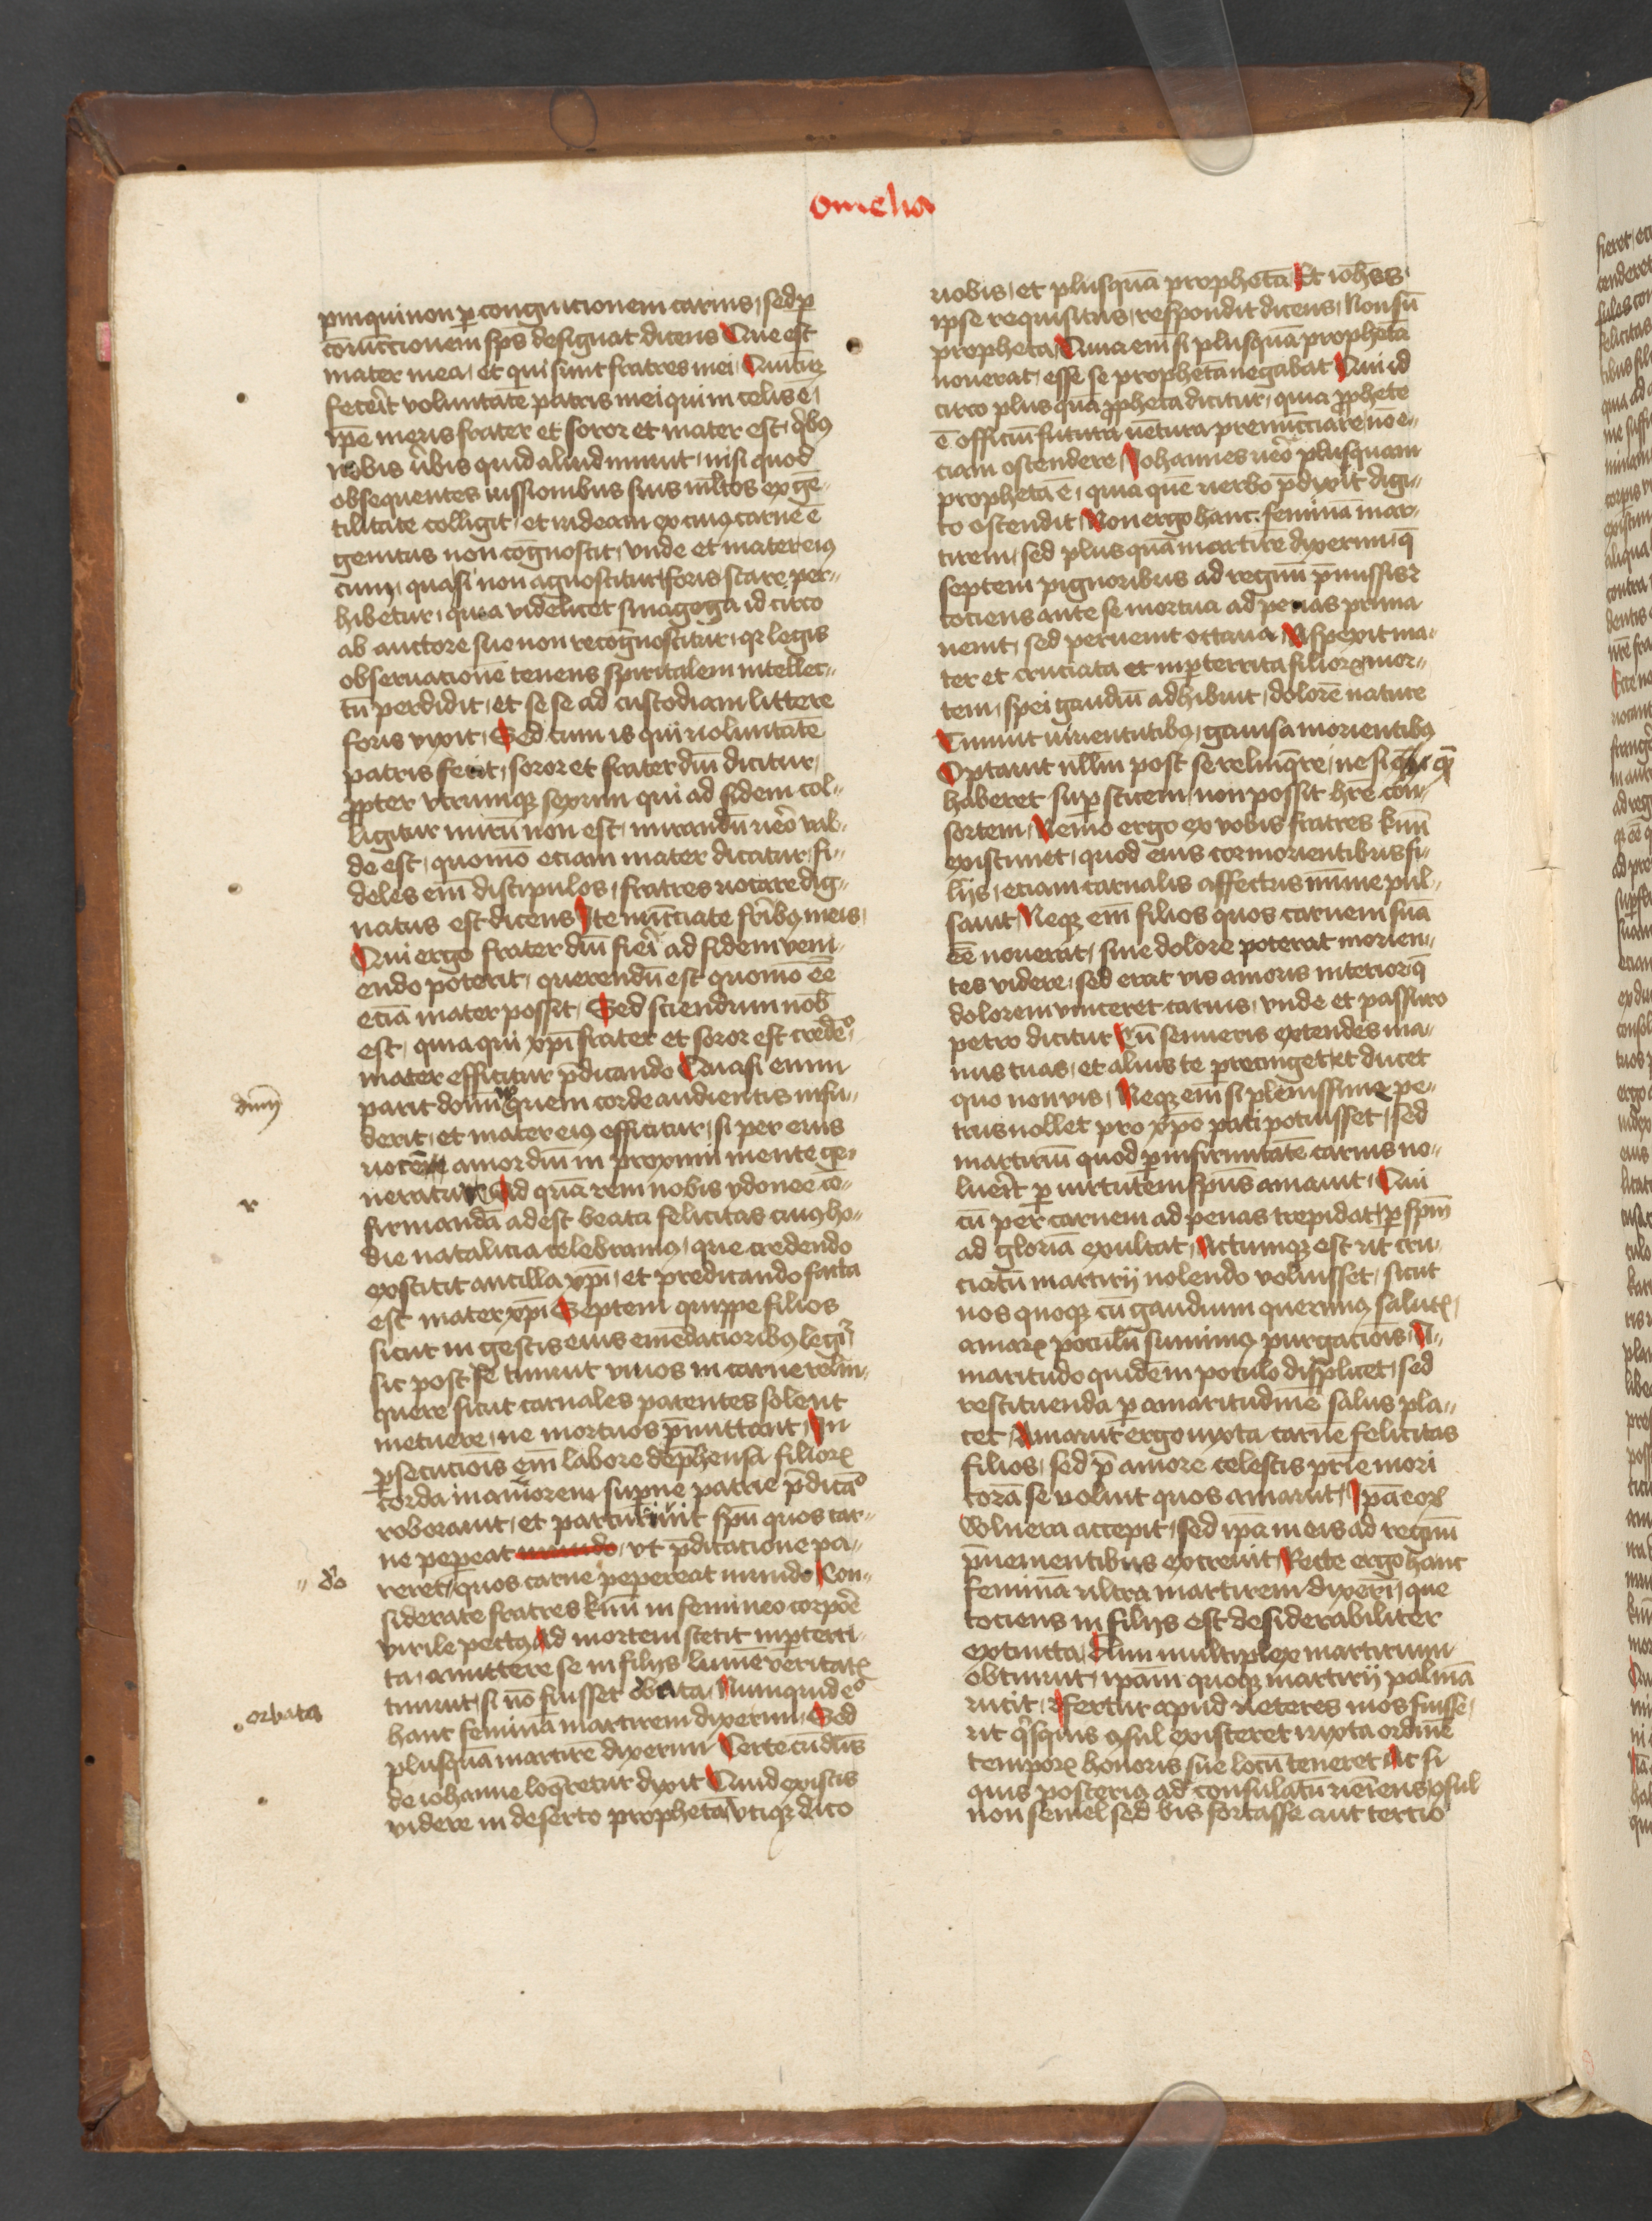 omelia
pinqui non p̱ congnicionem carnis, sed p̱
coniuncc̄ionem sp̄s designat dicens Que est
mater mea, et qui sunt fratres mei, Quicūqꝫ
fecerit voluntatē patris mei qui in celis ē,
ip̄e meus frater et soror et mater est, qͥbꝯ
nobis v̓bis quid aliud innuit, nisi quod
obsequentes iussionibus suis ml̓tos ex gē-
tilitate colligit, et iudeam ex cuiꝯ carne ē
genitus non cognoscit, vnde et mater eiꝯ
cum, quasi non agnoscitur, foris stare per-
hibetur, quia videlicet sinagoga idcirco
ab auctore suo non recognoscitur, qꝛ legis
obseruacionē tenens spiritalem intellec-
tū perdidit, et sese ad custodiam littere
foris vixit, Sed cum is qui voluntatē
patris fecit, soror et frater dn̄i dicitur,
ꝓpter vtrumqꝫ sexum qui ad fidem col-
ligitur mirū non est, mirandū uero val-
de est, quomō eciam mater dicatur, fi-
deles em̄ discipulos, fratres uocare dig-
natus est dicens Ite nūcciate fr̄ibꝯ meis,
Qui ergo frater dn̄i fieri ad fidem veni-
endo poterit, querendū est quomō eē
eciā mater possit, Sed sciendum nob̄
est, quia qui xp̄i frater et soror est credēᵒ,
mater efficitur p̄dicando Quasi enim
parit dominū quem corde audientis infu-
derit, et mater eiꝯ efficitur, si per eius
uocē amor dn̄i in proximi mente ge-
neratur Ad quā rem nobis ydonee cō-
firmandā adest beata felicitas cuiꝯ ho-
die natalicia celebramꝯ, que credendo
exstitit ancilla xp̄i, et predicando facta
est mater xp̄i Septem quippe filios
sicut in gestis eius emēdacioribꝯ legiͬ
sic post se timuit viuos in carne relin-
quere sicut carnales parentes solent
metuere, ne mortuos p̄mittant, In
ꝑsecucionis em̄ labore dep̄hensa filioꝝ
corda in amorem supne patrie p̄dicāᵒ
roborauit, et parturiuit spū quos car-
ne pepeat mundo, vt p̄dicacione pa-
reret, quos carne pepereat mundo Con-
siderate fratres kmi in femineo corpoe
virile pectꝯ Ad mortem stetit inp̱terri-
ta, amittere se in filijs lumē veritatꝭ
timuit, si nō fuisset orbata, Numquid eᵒ
hanc feminā martirem dixerim, Sed
plusquā martirē dixerim Certe cū dn̄s
de iohanne loq̄retur dixit Quid existis
videre in deserto prophetā vtiqꝫ dico
dnm̄
r
do
orbata
uobis, et plusquā prophetā, Et ioh̄es
ipse requisitus, respondit dicens, Non sū
propheta, Quia em̄ si plusquā prophetā
nouerat, esse se prophetā negabat Qui id
circo plus quā ꝓpheta dicitur, quia ꝓphete
ē officiū futura uētura prenūcciare nō e-
ciam ostendere, Iohannes uero plusquam
prophetā ē, quia que uerbo p̄dixit digi-
to ostendit, Non ergo hanc feminā mar-
tirem, sed plus quā martirē dixerim, q̄
septem pignoribus ad regnū p̄missis
tociens ante se mortua ad penas prima
uenit, sed peruenit octaua, Aspexit ma-
ter et cruciata et inp̱territa filioꝝ mor-
tem, spei gaudiū adhibuit, dolorē nature
Timuit uiuentibus, gauisa morientibꝯ
Optauit nullm̄ post se relinq̄re, ne si quē
haberet sup̱stitem, non possit h̄re con-
sortem, Nemo ergo ex vobis fratres kmi
existimet, quod eius cor morientibus fi-
lijs, eciam carnalis affectus mīme pul-
sauit, Neqꝫ em̄ filios quos carnem suā
eē nouerat, sine dolore poterat morien-
tes videre, sed erat vis amoris interior q̄
dolorem vinceret carnis, vnde et passuro
petro dicitur Cū senueris extendes ma-
nus tuas, et alius te precinget, et ducet
quo non vis, Neqꝫ em̄ si plenissime pe-
trus nollet pro xp̄o pati potuisset, sed
martiriū quod p̱ infirmitatē carnis no-
luerit p̱ uirtutem spūs amauit, Qui
cū per carnem ad penas trepidat, p̱ spm̄
ad gloriā exultat, Actumqꝫ est vt cru-
ciatū martirij nolendo voluisset, sicut
nos quoqꝫ cū gaudium querimꝯ salutꝭ,
amarꝭ poculū sumimꝯ purgacionis, A-
maritudo quidem poculo displicet, sed
restituenda p̱ amaritudinē salus pla-
cet, Amauit ergo iuxta carnē felicitas
filios, sed p̄ amore celestis prīe mori
corā se voluit quos amauit, Ip̄a eoꝝ
wlnera accepit, sed ip̄a in eis ad regnū
p̄uenientibus excreuit, Recte ergo hanc
feminā ultra martirem dixeri, que
tociens in filijs est desiderabiliter
extincta, Dum multiplex martirium
obtinuit, ip̄am quoqꝫ martirij palmā
uicit, Fertur apud ueteres mos fuisse,
ut qͥsquis ꝯsul existeret iuxta ordinē
temporꝝ honoris sue locū teneret At si
quis posteriꝯ ad consulatū ueniens, ꝯsul
non semel sed bis fortasse aut tercio